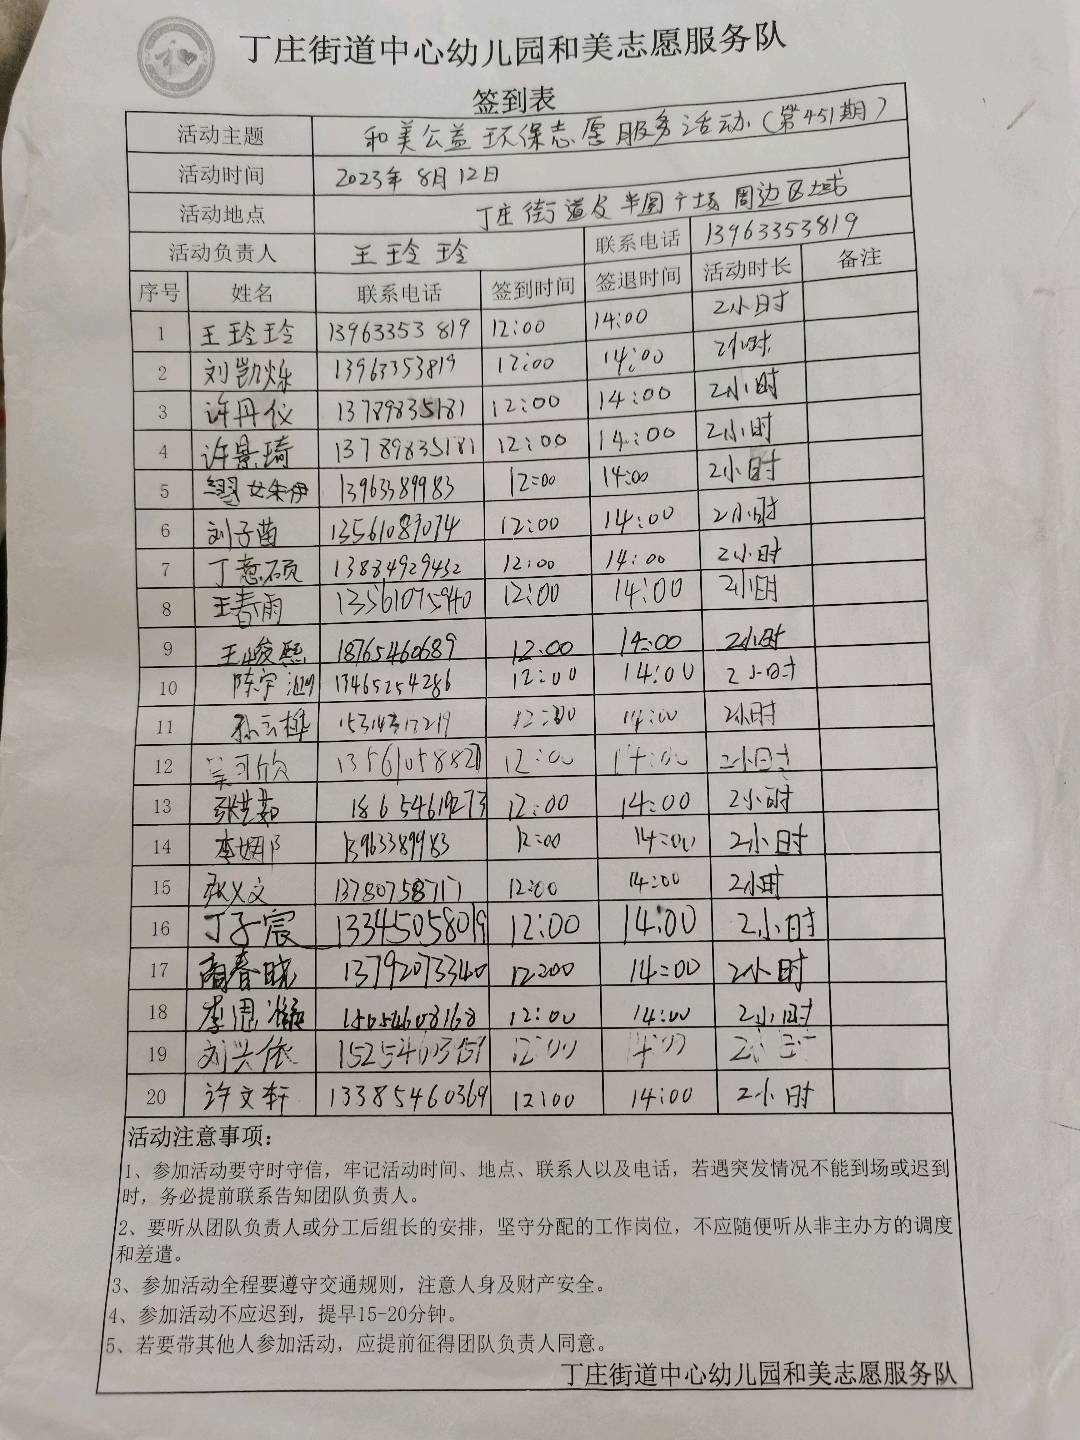 丁庄街道中心幼儿园和美志愿服务队
签到表
活动主题 和美公益环保志愿服务活动(第451期)
活动时间 2023年8月12日
活动地点 丁庄街道及半圆广场周边区域
活动负责人 王玲玲 联系电话 13963353819
序号 姓名 联系电话 签到时间 签退时间 活动时长 备注
1 王玲玲 13963353819 12:00 14:00 2小时
2 刘凯烁 13963353819 12:00 14:00 2小时
3 许丹仪 13789835181 12:00 14:00 2小时
4 许景琦 13789835181 12:00 14:00 2小时
5 13963389983 12:00 14:00 2小时
6 刘子菡 13561083074 12:00 14:00 2小时
7 丁意硕 13884929432 12:00 14:00 2小时
8 王春雨 13561075940 12:00 14:00 2小时
9 王峻熙 18765460689 12:00 14:00 2小时
10 陈宇 13465254286 12:00 14:00 2小时
11 孙云桦 12:00 14:00 2小时
12 吴可欣 13561058821 12:00 14:00 2小时
13 张艺茹 18654619273 12:00 14:00 2小时
14 李 13963389983 12:00 14:00 2小时
15 12:00 14:00 2小时
16 丁子宸 13345058019 12:00 14:00 2小时
17 商春晓 13792073340 12:00 14:00 2小时
18 李 15054608168 12:00 14:00 2小时
19 刘兴依 12:00 14:00
20 许文轩 13385460369 12:00 14:00 2小时
活动注意事项:
1、参加活动要守时守信，牢记活动时间、地点、联系人以及电话，若遇突发情况不能到场或迟到
时，务必提前联系告知团队负责人。
2、要听从团队负责人或分工后组长的安排，坚守分配的工作岗位，不应随便听从非主办方的调度
和差遣。
3、参加活动全程要遵守交通规则，注意人身及财产安全。
4、参加活动不应迟到，提早15-20分钟。
5、若要带其他人参加活动，应提前征得团队负责人同意。
丁庄街道中心幼儿园和美志愿服务队